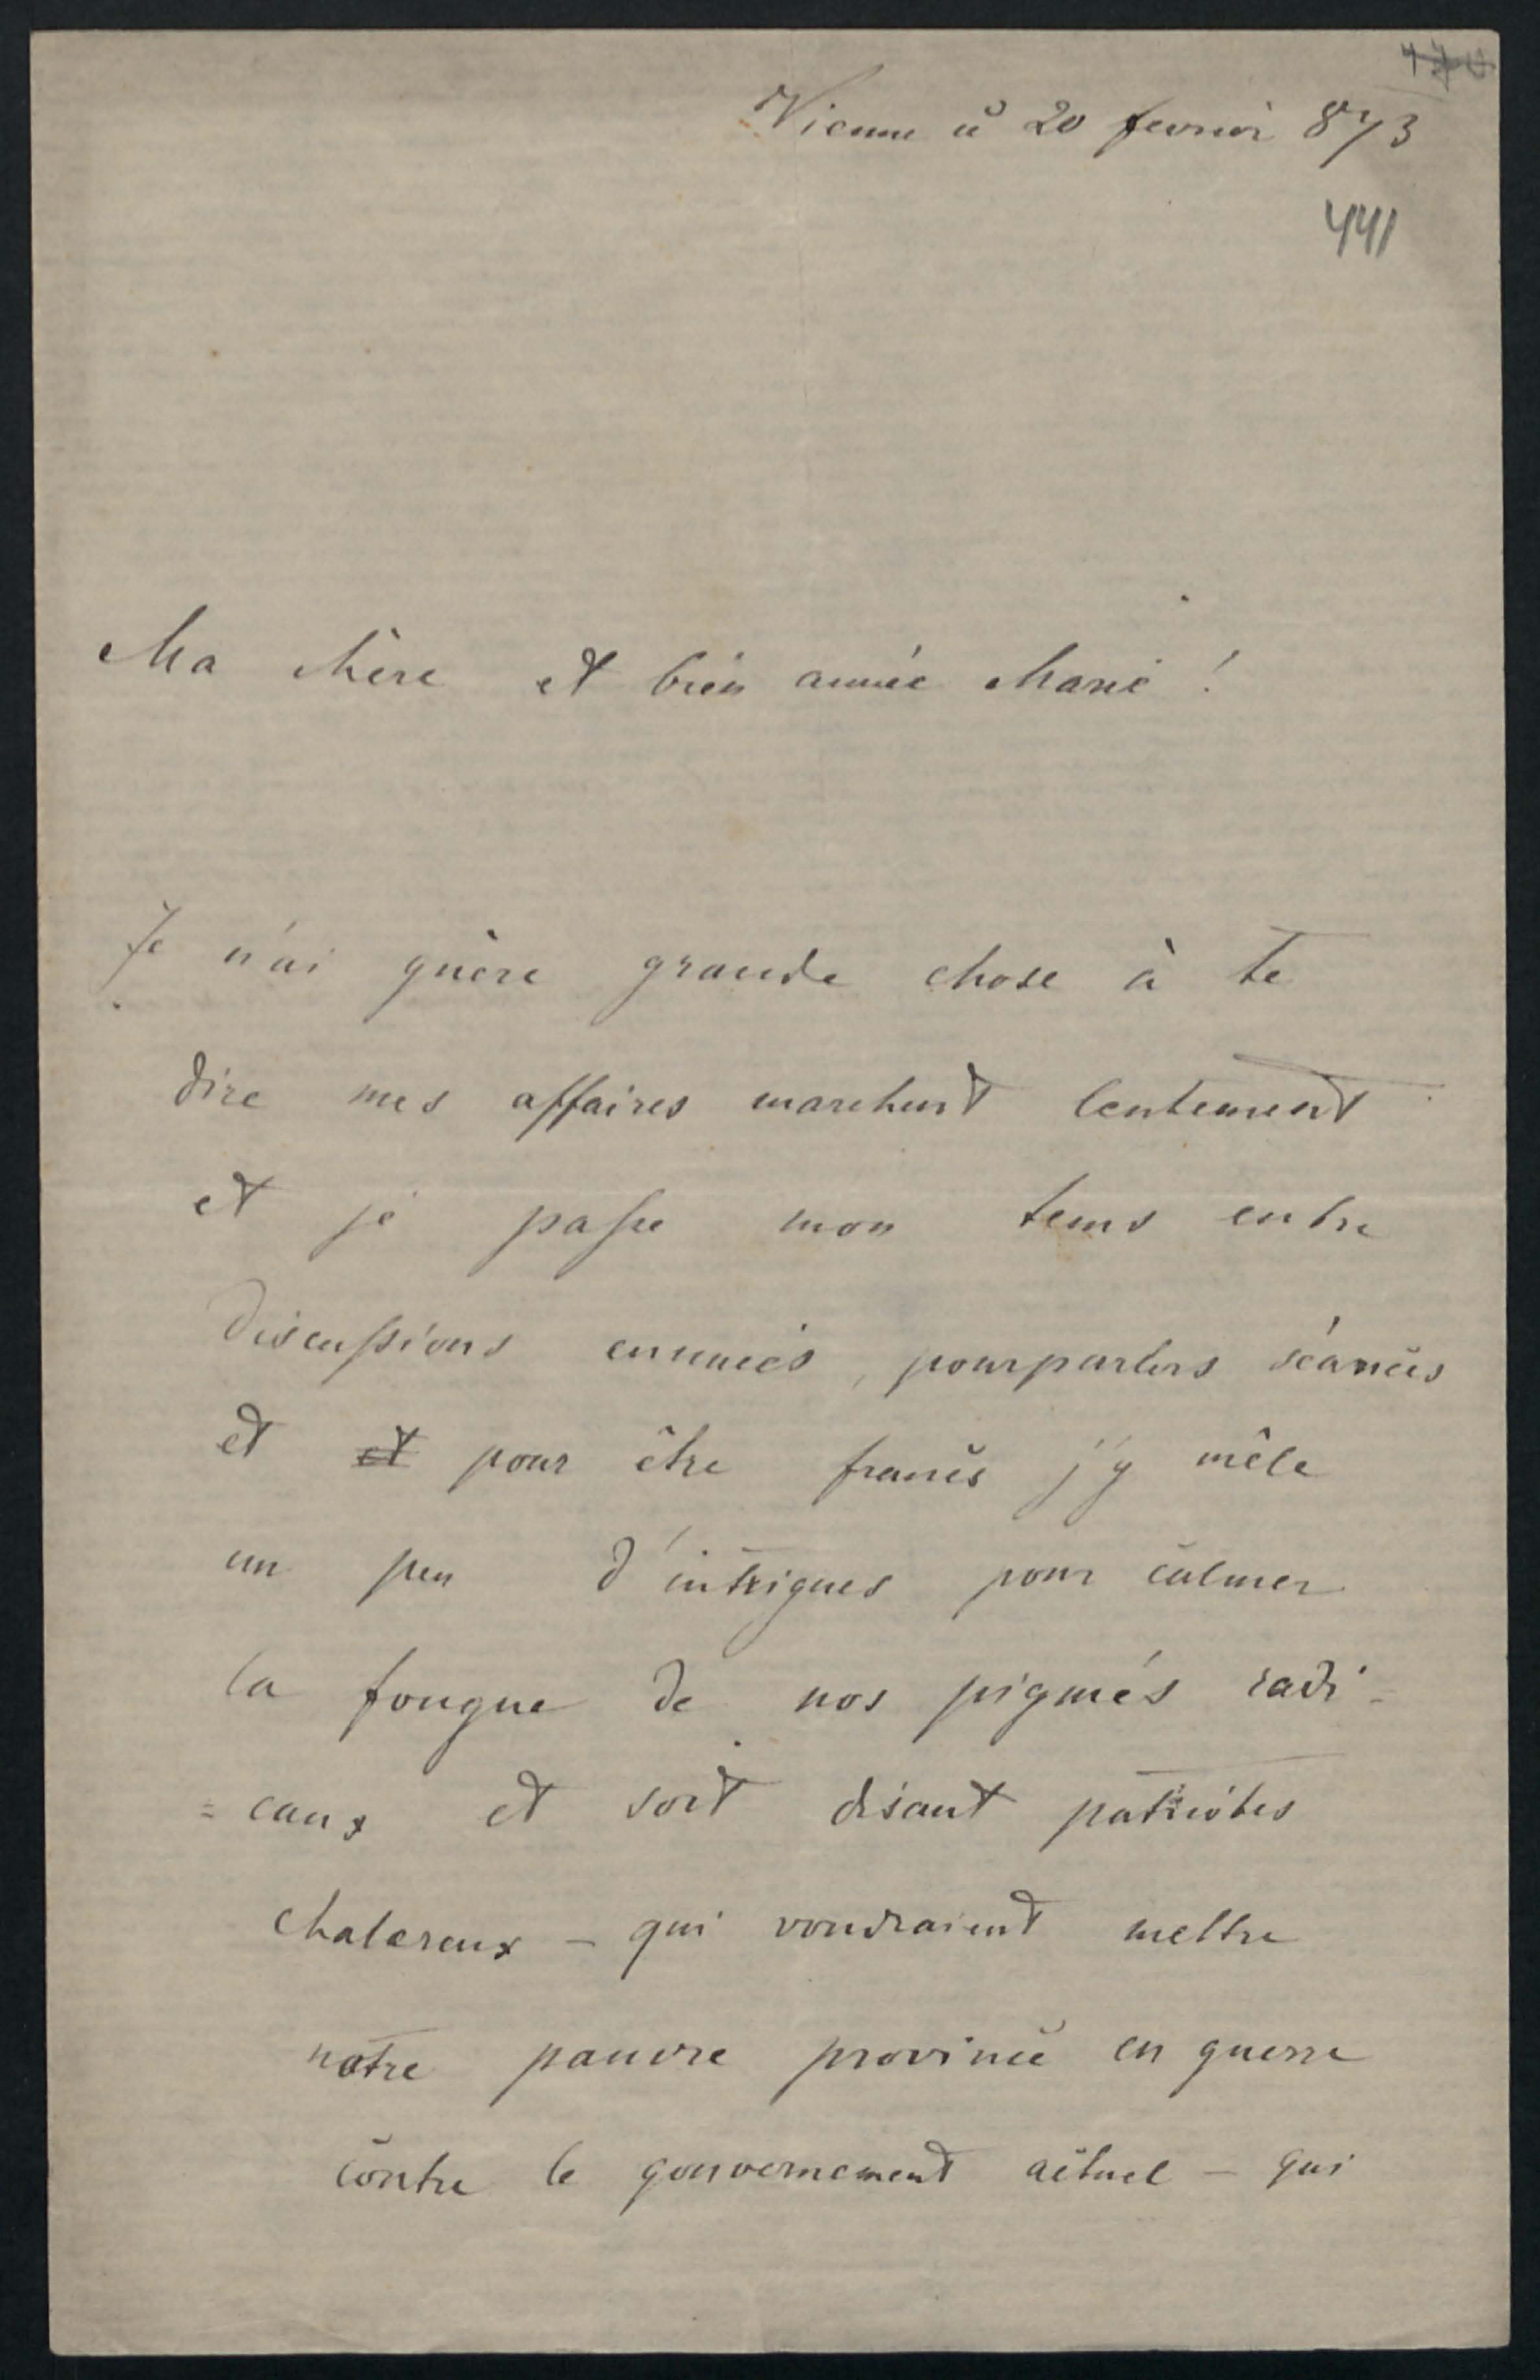 Vienne ce 20 fevrier 873
441
Ma chère et bien aimée Marie !
Je n'ai guère grande chose à te
dire mes affaires marchent lentement
et je passe mon tems entre
discussions ennuies, pourparlers séances
et et pour être francs j'y mêle
un peu d'intrigues pour calmer
la fougue de nos pigmés radi=
=caux et soit disant patriotes
chalereux – qui voudraient mettre
notre pauvre province en guerre
contre le gouvernement actuel – qui